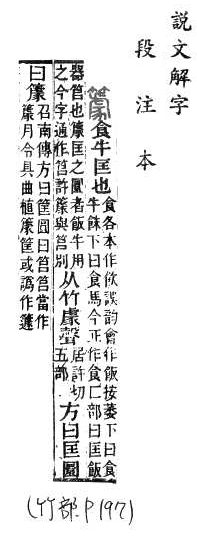 說文解字
段注本
食牛匡也 食各本作飮誤韵會作飯按萎下曰食
牛䬴下曰食馬今正作食匚部曰匡飯
器筥也𥴧匡之圜者飯牛用
之今字通作筥許𥴧與筥別 从竹豦聲 居許切
五部 方曰匡圜
曰𥴧 召南傳方曰筐圓曰筥筥當作
𥴧月令具曲植𥴧筐或譌作籧
(竹部.P197)